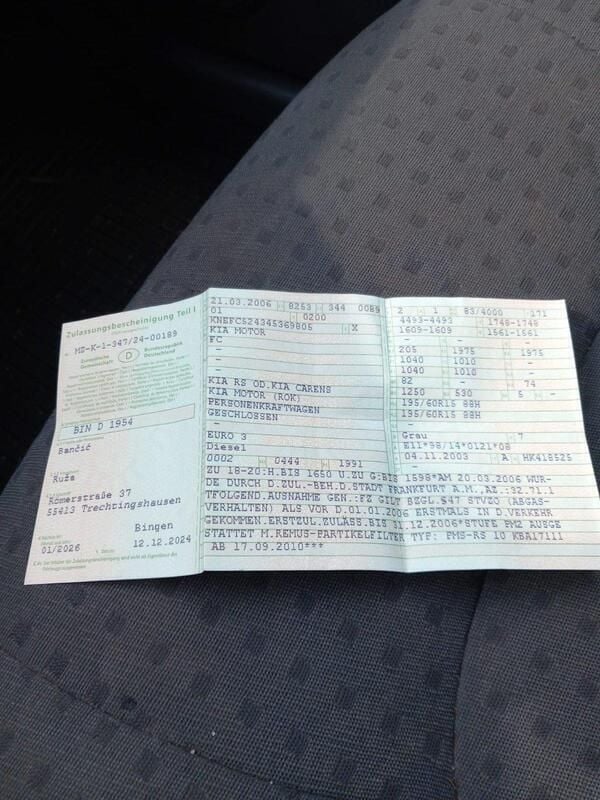 Zulassungsbescheinigung Teil I
MZ-K-1-347/24-00189
Europäische Gemeinschaft
D
Bundesrepublik Deutschland
BIN D 1954
Bančić
Ruža
Römerstraße 37
55413 Trechtingshausen
Bingen
01/2026
12.12.2024
21.03.2006 8253 344
01 0200
KNEFC524345369805 X
KIA MOTOR
FC
-
-
KIA RS OD.KIA CARENS
KIA MOTOR (ROK)
PERSONENKRAFTWAGEN
GESCHLOSSEN
-
EURO 3
Diesel
0002 0444 1991
2 1 83/4000 171
4493-4493 1748-1748
1609-1609 1561-1561
- - -
205 1975 1975
1040 1010
1040 1010
82 - 74
1250 530 5 -
195/60R15 88H
195/60R15 88H
-
Grau 7
E11*98/14*0121*08
04.11.2003 A HK418525
ZU 18-20:H.BIS 1650 U.ZU G:BIS 1598*AM 20.03.2006 WUR-
DE DURCH D.ZUL.-BEH.D.STADT FRANKFURT A.M.,AZ.:32.71.1
TFOLGEND.AUSNAHME GEN.:FZ GILT BZGL.§47 STVZO (ABGAS-
VERHALTEN) ALS VOR D.01.01.2006 ERSTMALS IN D.VERKEHR
GEKOMMEN.ERSTZUL.ZULÄSS.BIS 31.12.2006*STUFE PM2 AUSGE
STATTET M.REMUS-PARTIKELFILTER TYP: PMS-RS 10 KBA17111
AB 17.09.2010***